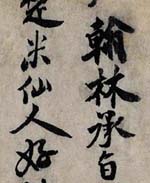 翰林承旨
是米仙人好